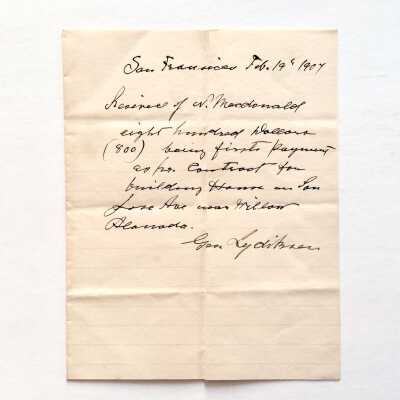 San Francisco Feb. 19th 1907
Received of N. Macdonald
eight hundred Dollars
(800) being first Payment
as per Contract for
building House on San
Jose Ave near Willow
Alameda.
Geo.